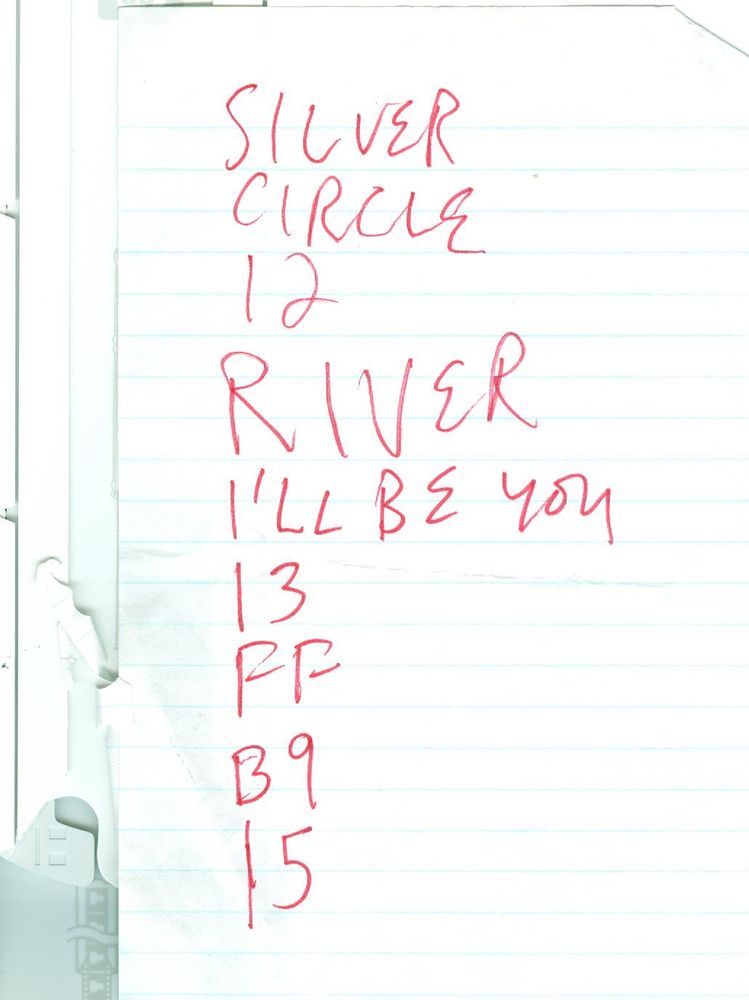 SILVER
CIRCLE
12
RIVER
I'LL BE YOU
13
FF
B9
15